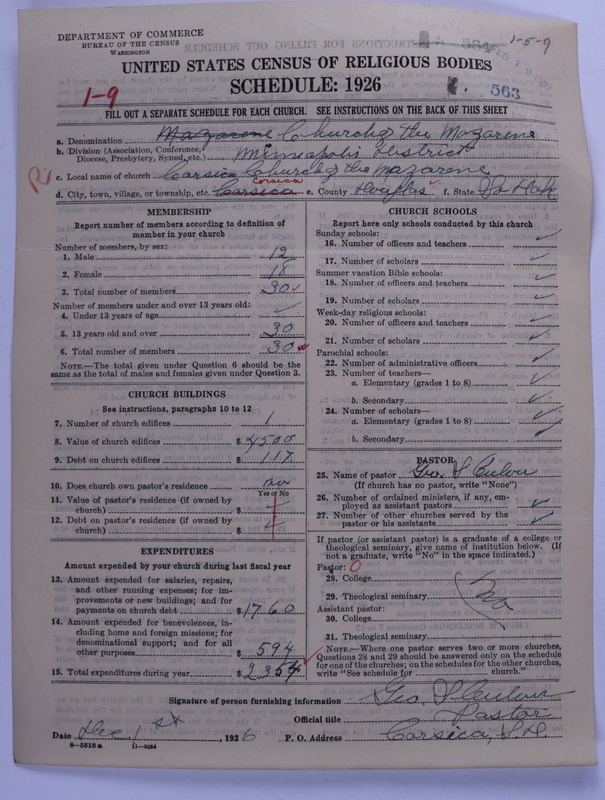 DEPARTMENT OF COMMERCE
BUREAU OF THE CENSUS
WASHINGTON
564
1-5-9
UNITED STATES CENSUS OF RELIGIOUS BODIES
SCHEDULE: 1926
563
1-9
FILL OUT A SEPARATE SCHEDULE FOR EACH CHURCH. SEE INSTRUCTIONS ON THE BACK OF THIS SHEET
a. Denomination Church of the Nazarene
b. Division (Association, Conference, Diocese, Presbytery, Synod, etc.) Minneapolis District
c. Local name of church Corsica Church of the Nazarene
Corsica
d. City, town, village, or township, etc. Corsica e. County Douglas f. State So Dak
MEMBERSHIP
Report number of members according to definition of member in your church
Number of members, by sex:
1. Male 12
2. Female 18
3. Total number of members 30
Number of members under and over 13 years old:
4. Under 13 years of age
5. 13 years old and over 30
6. Total number of members 30
NOTE.—The total given under Question 6 should be same as the total of males and females given under Question 3.
CHURCH BUILDINGS
See instructions, paragraphs 10 to 12
7. Number of church edifices 1
8. Value of church edifices $4500
9. Debt on church edifices $117
10. Does church own pastor's residence? no
Yes or No
11. Value of pastor's residence (if owned by church) $
12. Debt on pastor's residence (if owned by church) $
EXPENDITURES
Amount expended by your church during last fiscal year
13. Amount expended for salaries, repairs, and other running expenses; for improvements or new buildings; and for payments on church debt $1760
14. Amount expended for benevolences, including home and foreign missions; for denominational support; and for all other purposes $594
15. Total expenditures during year $2354
CHURCH SCHOOLS
Report here only schools conducted by this church
Sunday schools:
16. Number of officers and teachers
17. Number of scholars
Summer vacation Bible schools:
18. Number of officers and teachers
19. Number of scholars
Week-day religious schools:
20. Number of officers and teachers
21. Number of scholars
Parochial schools:
22. Number of administrative officers
23. Number of teachers—
a. Elementary (grades 1 to 8)
b. Secondary
24. Number of scholars—
a. Elementary (grades 1 to 8)
b. Secondary
PASTOR
25. Name of pastor Geo. S Culver
(If church has no pastor, write "None")
26. Number of ordained ministers, if any, employed as assistant pastors
27. Number of other churches served by the pastor or his assistants
If pastor (or assistant pastor) is a graduate of a college or theological seminary, give name of institution below. (If not a graduate, write "No" in the space indicated.)
Pastor: 0
28. College
29. Theological seminary No
Assistant pastor:
30. College
31. Theological seminary
NOTE.—Where one pastor serves two or more churches, Questions 28 and 29 should be answered only on the schedule for one of the churches; on the schedules for the other churches, write "See schedule for church."
Signature of person furnishing information Geo. S Culver
Official title Pastor
Date Dec, 1st, 1926 P. O. Address Corsica, S.D.
8-5518a 11-9034